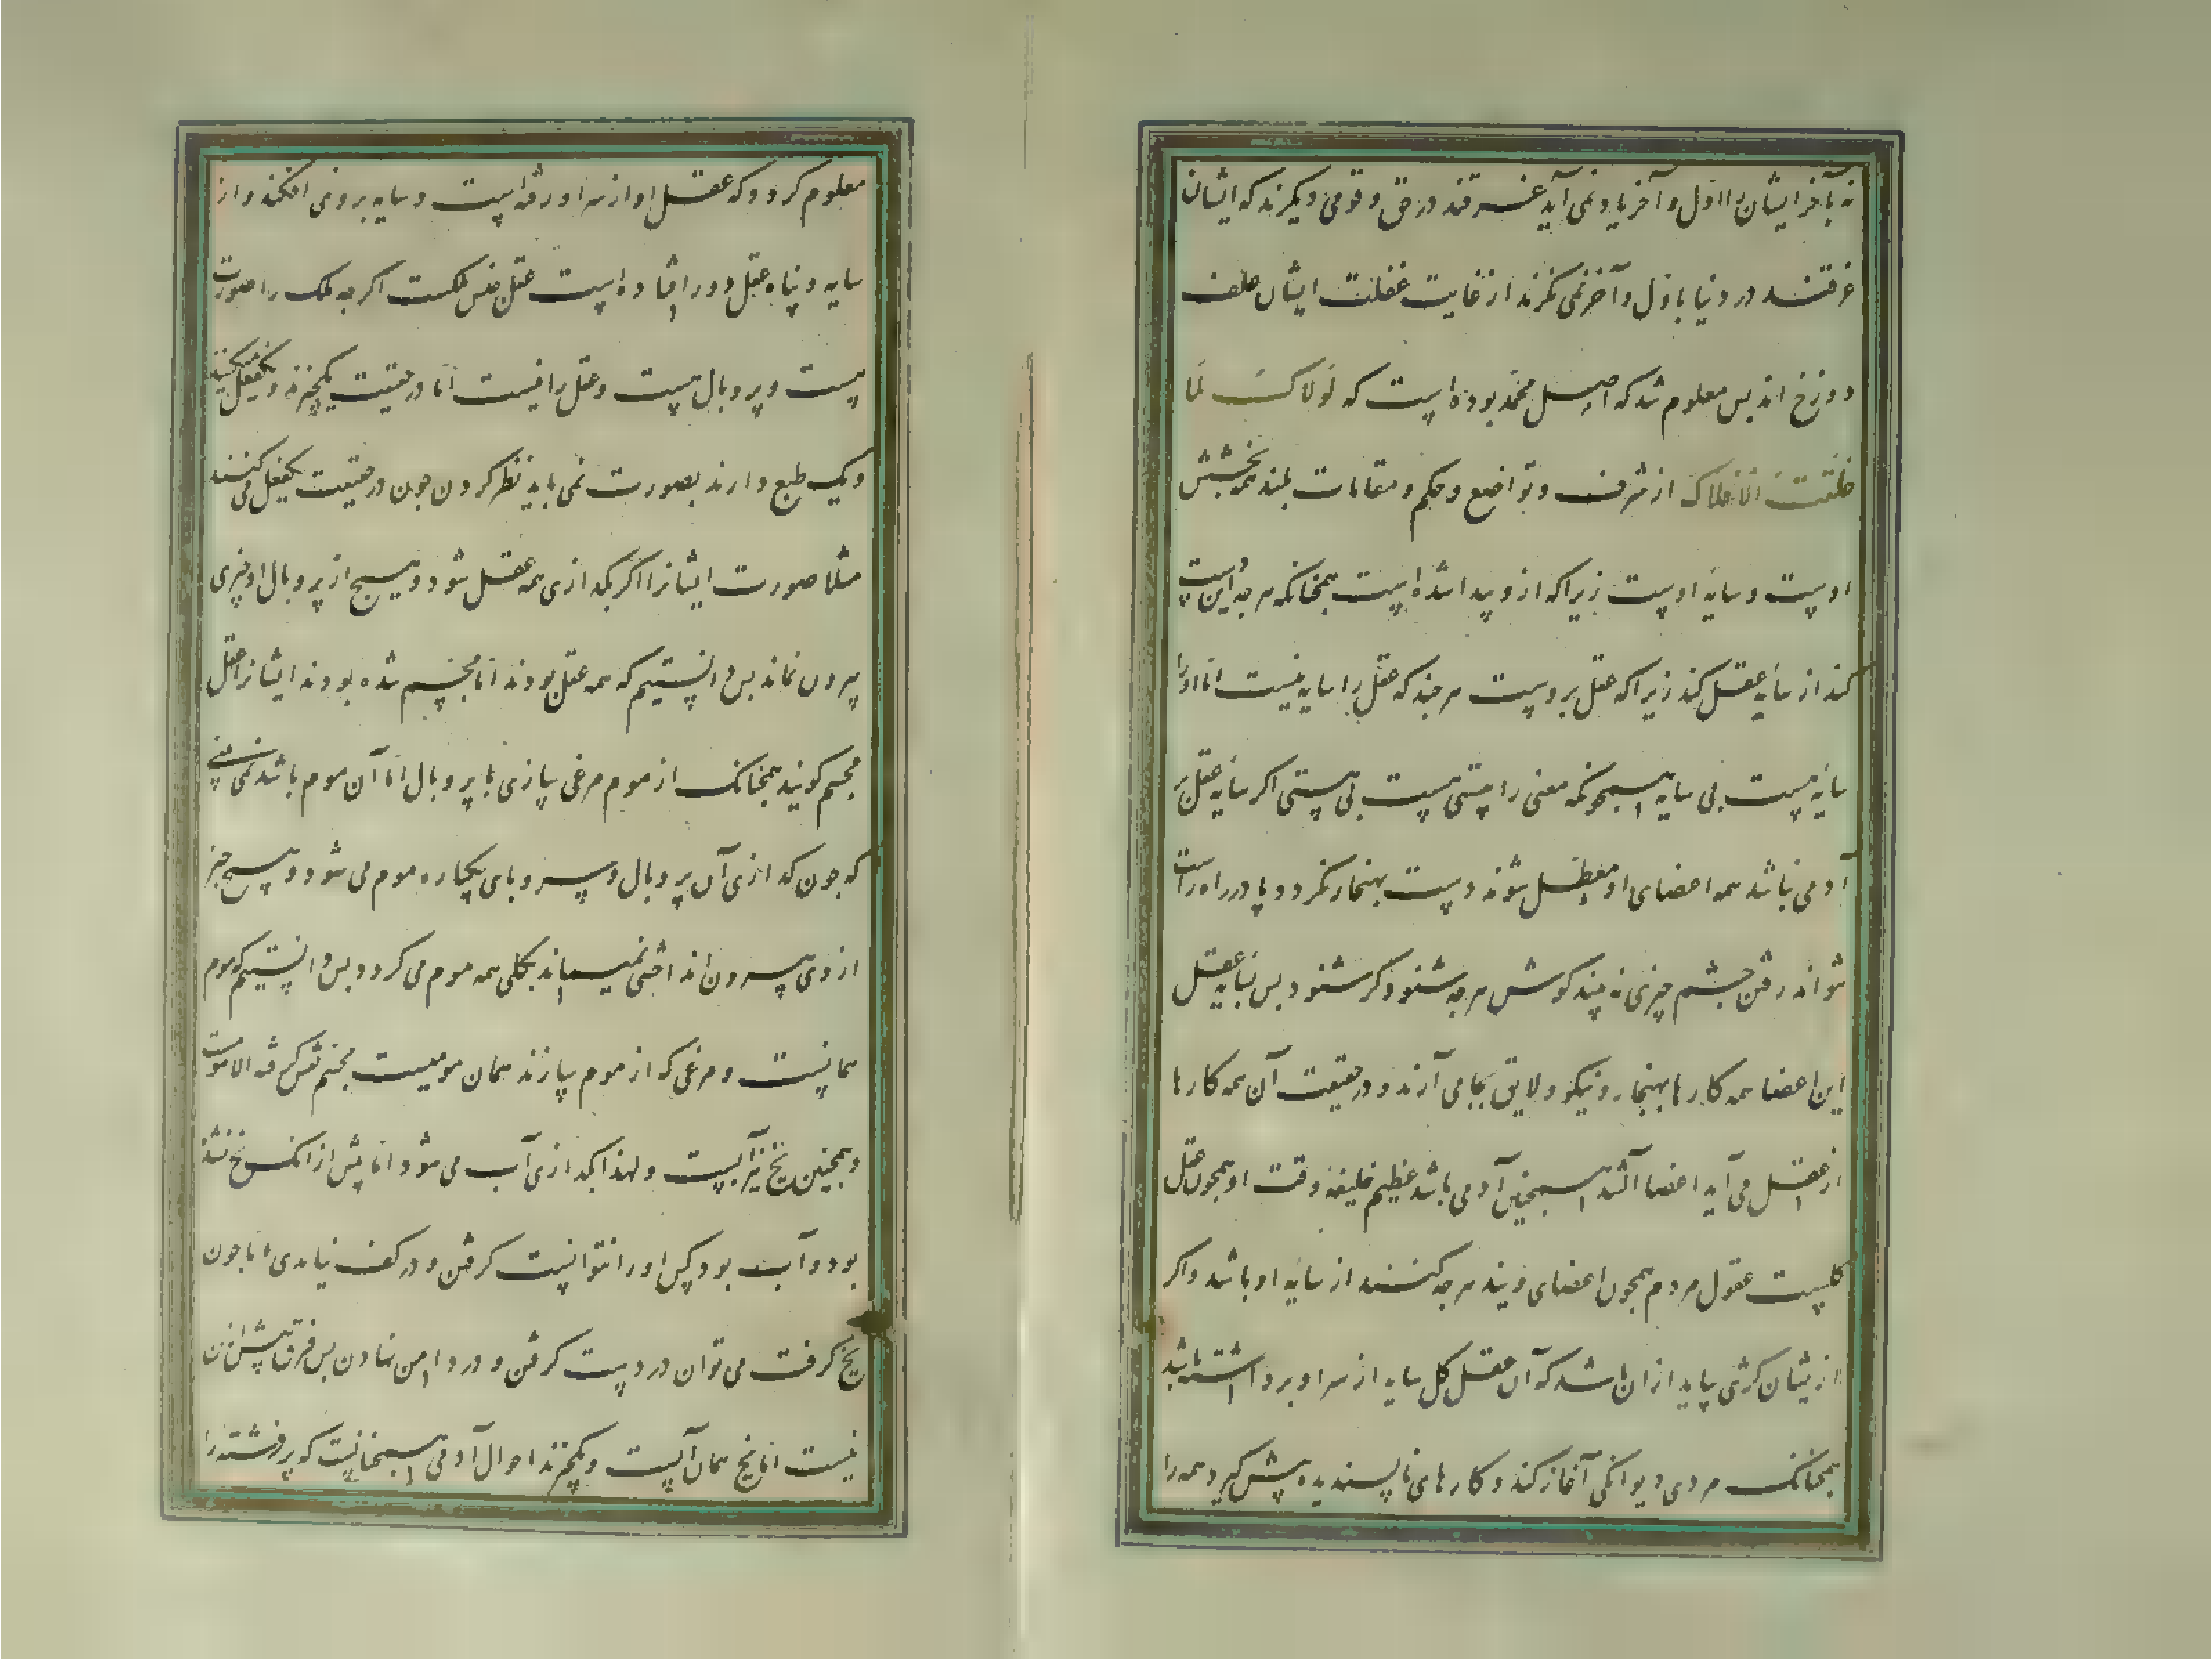 نه بآخر ایشان را اول و آخر یاد نمی آید غرقند در حق و قومی دیکرند که ایشان
غرقند در دنیا باول و آخر نمی نکرند از غایت غفلت ایشان علف
دوزخ اند بس معلوم شد که اصل محمد بوده است که لَولاکَ لَما
خَلَقتُ الاَفلاکَ از شرف و تواضع و حکم و مقامات بلند همه بخشش
اوست و سایه اوست زیرا که ازو پیدا شده است همجنانکه هرجه این دست
کند از سایه عقل کند زیرا که عقل بروست هرجند که عقل را سایه نیست اما او را
سایه هست بی سایه همجونکه معنی را هستی هست بی هستی اکر سایه عقل بر
آدمی نباشد همه اعضای او معطل شوند دست بهنجار نکرد و پا در راه راست
نتواند رفتن جشم جیزی نه بیند کوش هرجه شنود کژ شنود بس بسایه عقل
این اعضا همه کارها بهنجار و نیکو و لایق بجا می آرند و در حقیقت آن همه کارها
از عقل می آید اعضا آلتند همجنین آدمی باشد عظیم خلیفه وقت او همجون عقل
کلیست عقول مردم همجون اعضای ویند هرجه کنند از سایه او باشد و اکر
از یشان کژی بیاید از ان باشد که آن عقل کل سایه از سر او برداشته باشد
همجنانک مردی دیوانکی آغاز کند و کارهای ناپسندیده پیش کیرد همه را
معلوم کردد که عقل او از سر او رفته است و سایه بر وی نمی افکند و از
سایه و پناه عقل دور افتاده است عقل جنس ملکست اکرجه ملک را صورت
هست و پر و بال هست و عقل را نیست اما در حقیقت یکجیزند و یکفعل میکنند
و یک طبع دارند بصورت نمی باید نظر کردن جون در حقیقت یکفعل می کنند
مثلا صورت ایشانرا اکر بکدازی همه عقل شود و هیج از پر و بال او جیزی
بیرون نماند بس دانستیم که همه عقل بودند اما مجسم شده بودند ایشانرا عقل
مجسم کویند همجنانک از موم مرغی سازی با پر و بال اما آن موم باشد نمی بینی
که جون کدازی آن پر و بال و سر و پای یکباره موم می شود و هیج جیز
از وی بیرون انداختنی نمیماند بکلی همه موم می کردد بس دانستیم که موم
همانست و مرغی که از موم سازند همان مومیست مجسم نقش کرفته الا مومست
و همجنین یخ نیز آبست و لهذا بکدازی آب می شود اما پیش از انک یخ نشده
بود و آب بود کس او را نتوانست کرفتن و در کف نیامدی اما جون
یخ کرفت می توان در دست کرفتن و در دامن نهادن بس فرق بیش ازین
نیست اما یخ همان آبست و یکجیزند احوال آدمی همجنانست که پر فرشته را